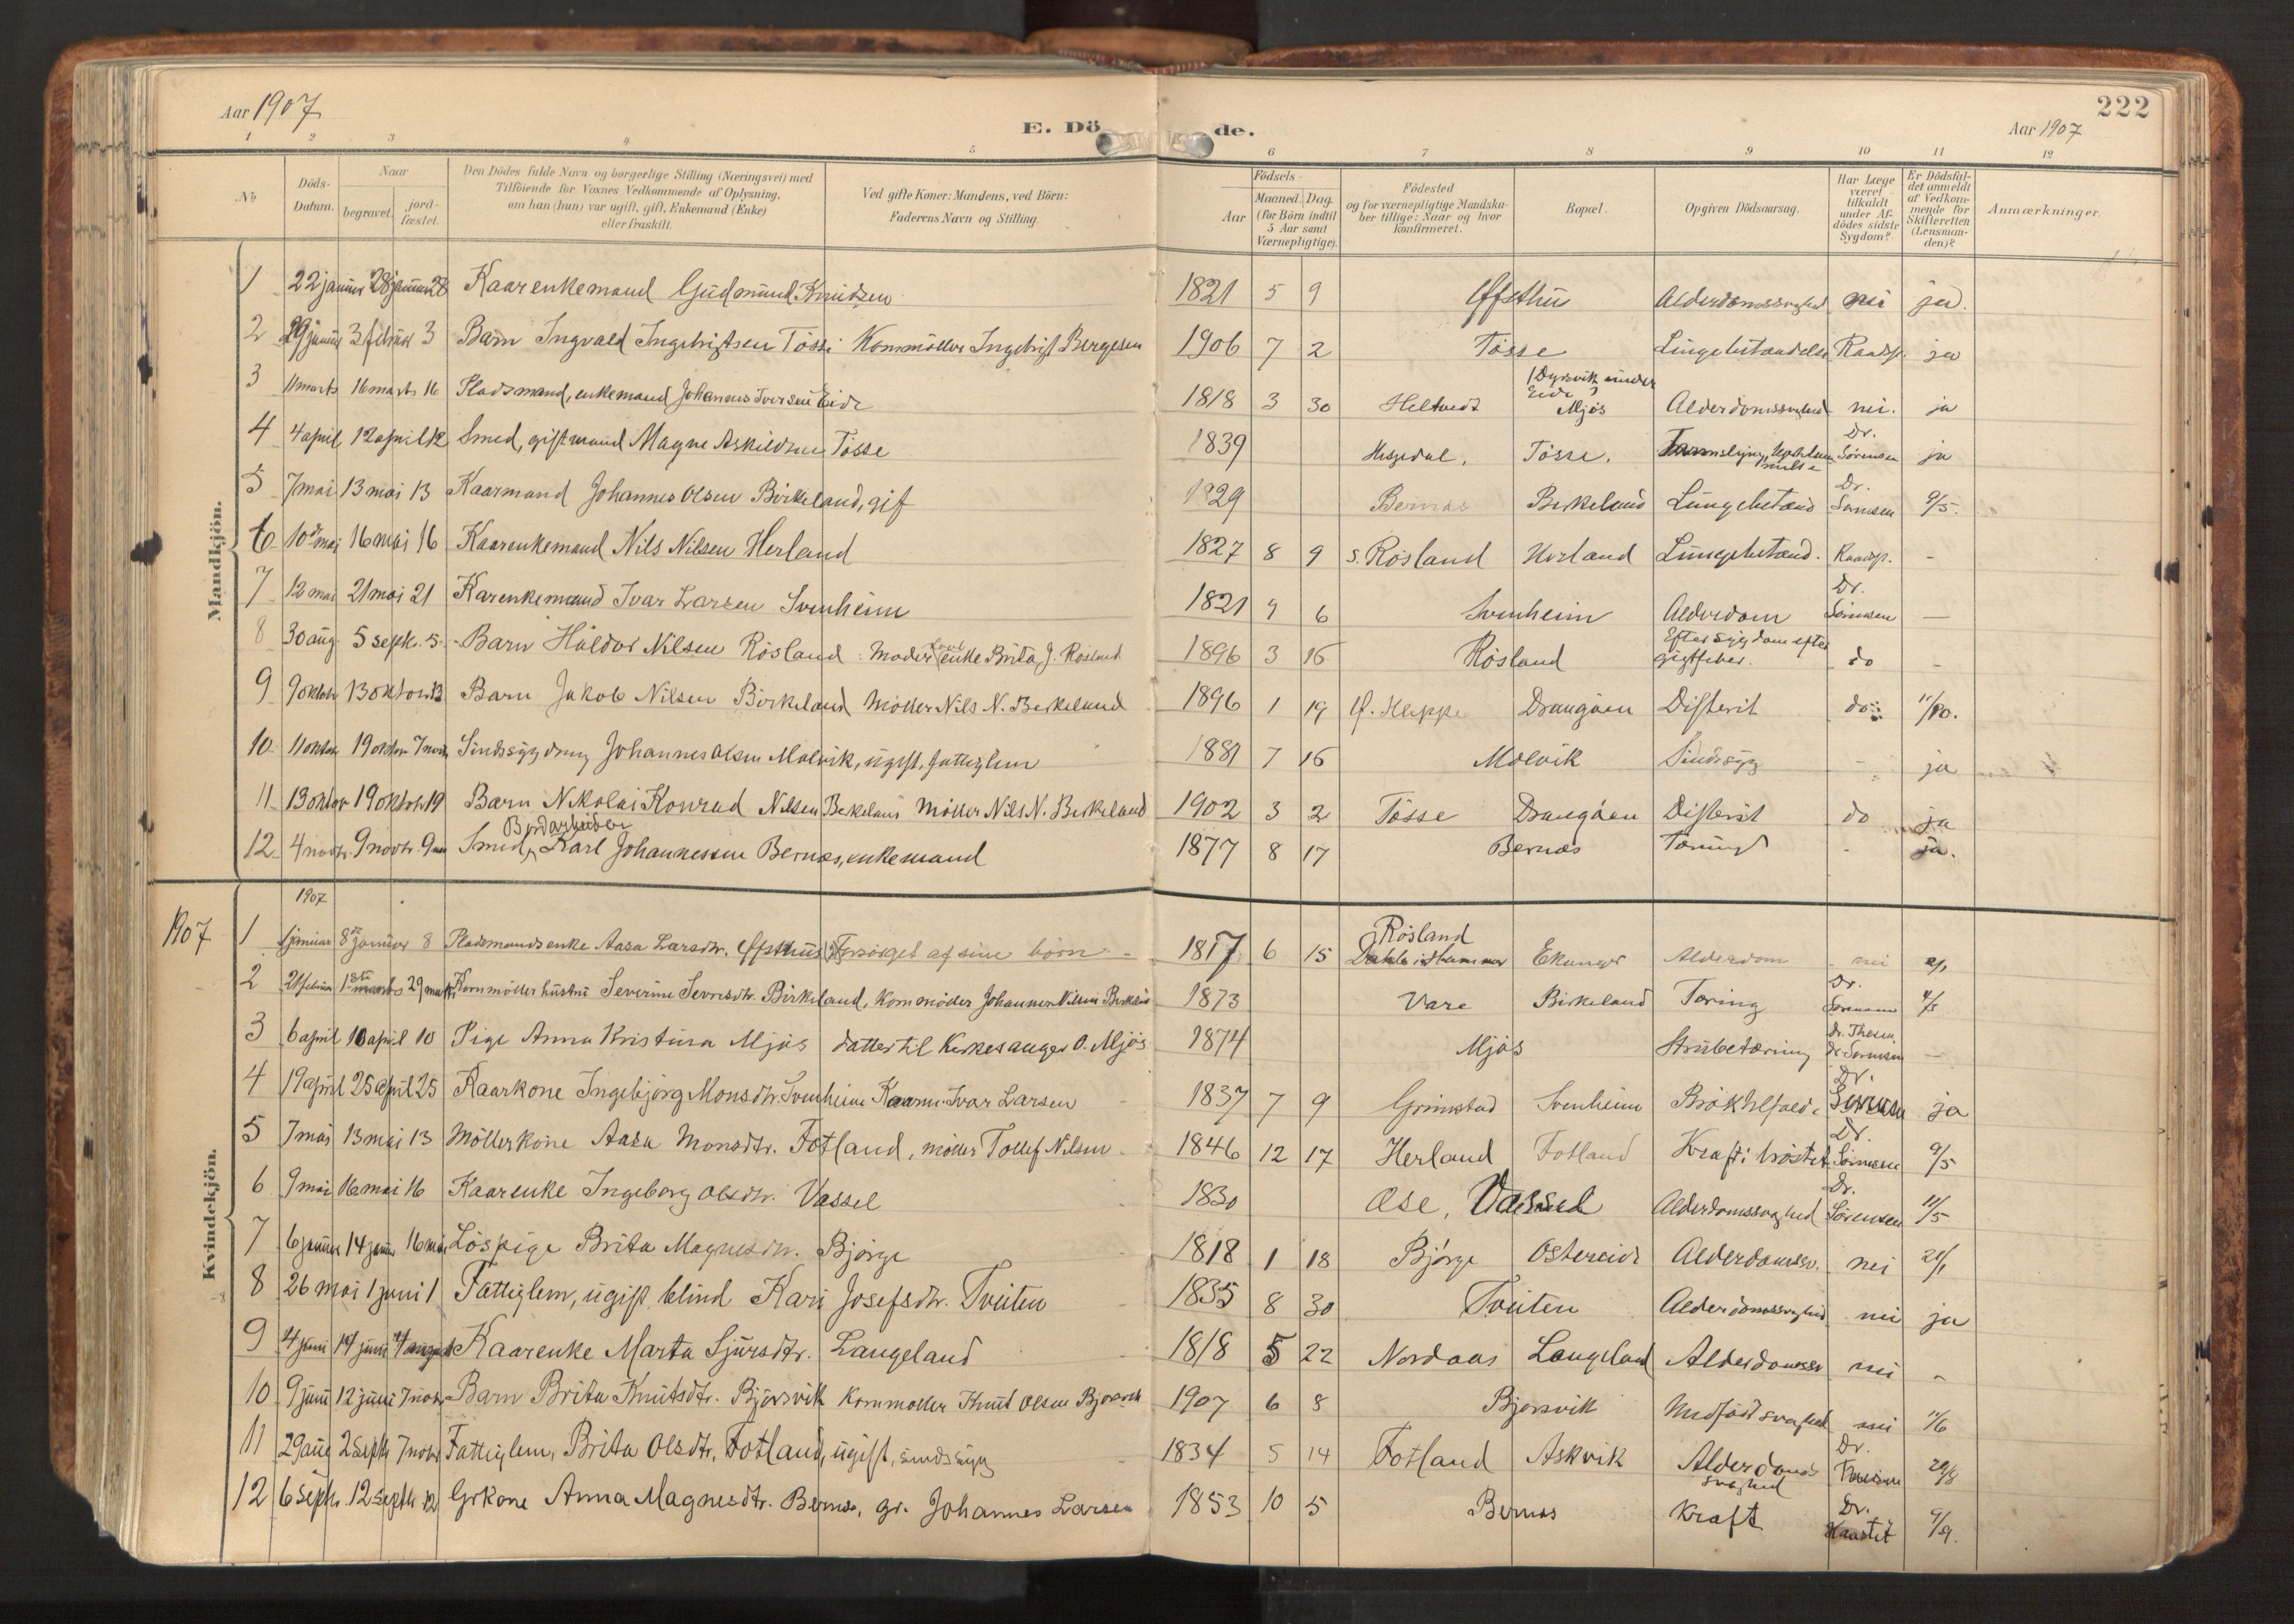 Aar 1907
E. Dö de.
222
Aar 1907
1 2 3 4 5 6 7 8 9 10 11 12
No
Döds-Datum.
Naar
begravet.
jord-fæstet.
Den Dödes fulde Navn og borgerlige Stilling (Næringsvei) med
Tilföiende for Voxnes Vedkommende af Oplysning,
om han (hun) var ugift, gift, Enkemand (Enke)
eller fraskilt.
Ved gifte Koner: Mandens, ved Börn:
Faderens Navn og Stilling.
Födsels-
Aar
Maaned. Dag.
(for Börn indtil
5 Aar samt
Værnepligtige).
Födested
og for værnepligtige Mandska-
ber tillige: Naar og hvor
konfirmeret.
Bopæl.
Opgiven Dödsaarsag.
Har Læge
været
tilkaldt
under Af-
dödes sidste
Sygdom?
Er Dödsfal-
det anmeldt
af Vedkom-
mende for
Skifteretten
(Lensman-
den)?
Anmærkninger.
Mandkjön.
1 22 januar 28 januar 28 Kaarenkemand Gudmund Knudsen 1821 5 9 Øfsthus Alderdomssvaghed nei ja.
2 29 januar 3 februar 3 Barn Ingvald Ingebrigtsen Tösse Kornmöller Ingebrigt Bergesen 1906 7 2 Tösse Lungebetændelse Raadsp. ja
3 11 marts 16 marts 16 Pladsmand, enkemand Johannes Iversen Eide 1818 3 30 Heltvedt (Dyrsvik under Eide) Mjös Alderdomssvaghed nei. ja
4 4 april 12 april 12 Smed, gift mand Magne Askildsen Tösse 1839 Hesjedal, Tösse. Dr. Sörensen ja
5 7 mai 13 mai 13 Kaarmand Johannes Olsen Birkeland, gift 1829 Bernaas Birkeland Lungebetænd Dr. Sörensen 9/5.
6 10de mai 16 mai 16 Kaarenkemand Nils Nilsen Herland 1827 8 9 s. Rösland Herland Lungebetænd. Raadsp. -
7 12 mai 21 mai 21 Karenkemand Ivar Larsen Svenheim 1821 9 6 Svenheim Alderdom Dr. Sörensen -
8 30 aug 5 septr. 5 Barn Haldor Nilsen Rösland Moder enke Brita J. Rösland 1896 3 16 Rösland Eftersygdom efter gigtfeber. do -
9 9 oktobr 13 oktobr 13 Barn Jakob Nilsen Birkeland Möller Nils N. Birkeland 1896 1 19 Drangöen Difterit do 11/10.
10 11 oktobr 19 oktobr 7 novbr Sindssyg dreng Johannes Olsen Molvik, ugift, fattiglem 1881 7 16 Molvik Sindssyg - ja
11 13 oktobr 19 oktobr 19 Barn Nikolai Konrad Nilsen Birkeland Möller Nils N. Birkeland 1902 3 2 Tösse Drangöen Difterit do ja
12 4 novbr. 9 novbr. 9 nov Smed, Karl Johannessen Bernaas, enkemand 1877 8 17 Bernaas Tæring - ja.
1907
1907
Kvindekjön.
1 januar 8de januar 8 Pladsmandsenke Aasa Larsdtr. Øfsthus Forsörget af sine börn 1817 6 15 Rösland Ekanger Alderdom nei
2 21 februar 1ste marts 29 marts Kornmöllerhustru Severine Severinsdtr. Birkeland, Kornmöller Johannes Nilsen Birkeland 1873 Vare Birkeland Tæring Dr. Sörensen
3 6 april 10 april 10 Pige Anna Kristina Mjös datter til Kirkesanger O. Mjös 1874 Mjös Strubetæring dr. Thesen dr Sörensen -
4 19 april 25 april 25 Kaarkone Ingebjörg Monsdtr. Svenheim Kaarm. Ivar Larsen 1837 7 9 Grimstad Svenheim Brokhelfæld Dr. Sörensen ja
5 7 mai 13 mai 13 Möllerkone Aasa Monsdtr. Fotland, möller Tollef Nilsen 1846 12 17 Herland Fotland Kræft i bröstet Dr. Sörensen 9/5
6 9 mai 16 mai 16 Kaarenke Ingeborg Olsdtr. Vassel 1830 Ose, Vassel Alderdomssvaghed Dr. Sörensen 11/5
7 6 januar 14 januar 16 mai Löspige Brita Magnesdtr. Bjørge 1818 1 18 Bjørge Ostereide Alderdomssv. nei 21/1
8 26 mai 1 juni 1 Fattiglem, ugift, blind Kari Josefsdtr. Tveiten 1835 8 30 Tveiten Alderdomssvaghed nei ja
9 4 juni 14 juni 4 august Kaarenke Marta Sjursdtr. Langeland 1818 5 22 Nordaas Langeland Alderdomssv nei -
10 9 juni 12 juni 7 novbr Barn Brita Knutsdtr. Bjørsvik Kornmöller Knut Olsen Bjørsvik 1907 6 8 Bjørsvik Medfödt svaghed nei 11/6
11 29 aug 2 septbr 7 novbr Fattiglem, Brita Olsdtr. Fotland, ugift, sindssyg 1834 5 14 Fotland Askvik Alderdomssvaghed Dr. Thesen 29/8
12 6 septr. 12 septbr 12 Grkone Anna Magnesdtr. Bernaas, gr. Johannes Larsen 1853 10 5 Bernaas Kræft Dr. 9/9.